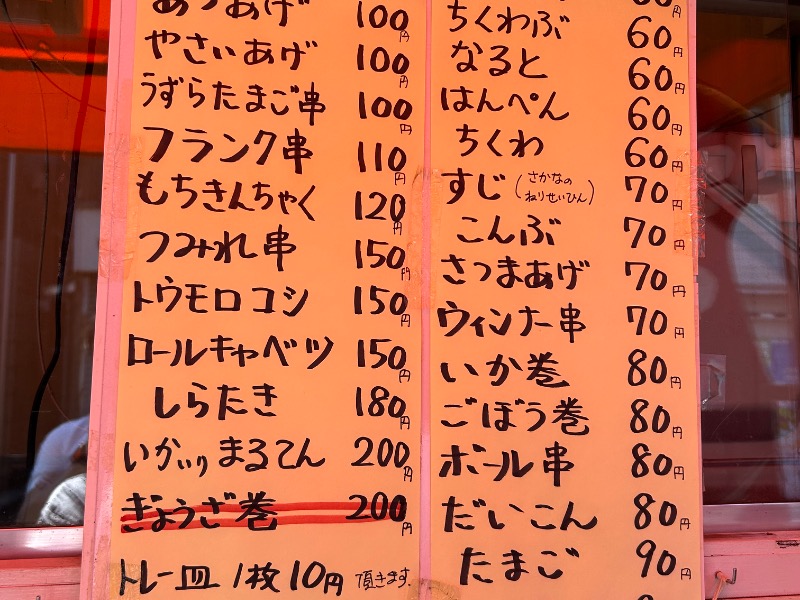 あつあげ 100円
やさいあげ 100円
うずらたまご串 100円
フランク串 110円
もちきんちゃく 120円
つみれ串 150円
トウモロコシ 150円
ロールキャベツ 150円
しらたき 180円
いかいりまるてん 200円
ぎょうざ巻 200円
トレー皿 1枚10円 頂きます.
ちくわぶ 60円
なると 60円
はんぺん 60円
ちくわ 60円
すじ(さかなのねりせいひん) 70円
こんぶ 70円
さつまあげ 70円
ウィンナー串 70円
いか巻 80円
ごぼう巻 80円
ボール串 80円
だいこん 80円
たまご 90円